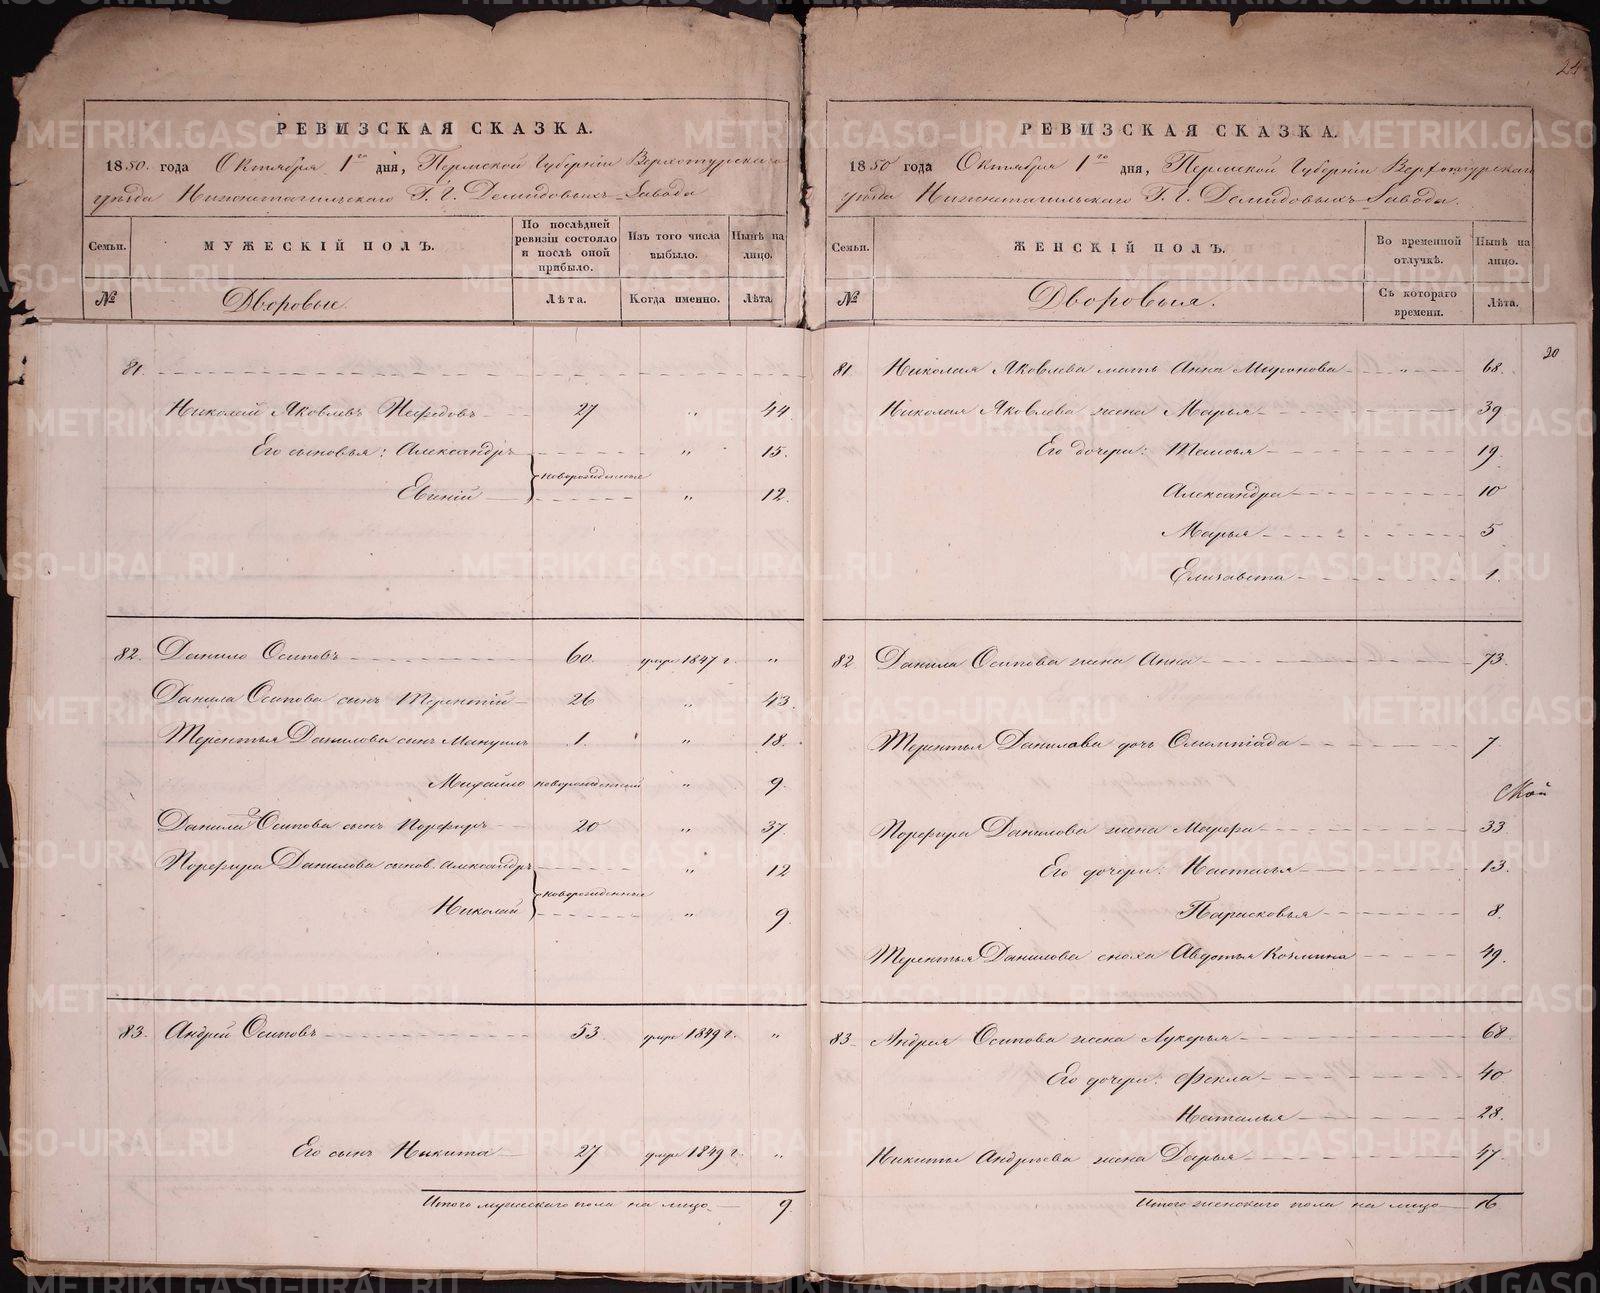 24
РЕВИЗСКАЯ СКАЗКА.
1850. года Октября 1го дня, Пермской Губерніи Верхотурскаго
уѣзда Нижнетагильскаго Г. Г. Демидовыхъ Завода
Семьи. МУЖЕСКІЙ ПОЛЪ. По послѣдней ревизіи состояло и послѣ оной прибыло. Изъ того числа выбыло. Нынѣ на лицо.
№ Дворовые. Лѣта. Когда именно. Лѣта
81.
Николай Яковлевъ Нефедовъ 27 " 44.
Его сыновья: Александръ " 15.
новорожденные
Евгеній " 12.
82. Данило Осиповъ 60. умре 1847 г. "
Данила Осипова сынъ Терентій 26 " 43.
Терентья Данилова сынъ Мануилъ 1. " 18.
Михайло новорожденный " 9.
Данила Осипова сынъ Порфиръ 20 " 37.
Порфира Данилова сынов. Александръ " 12
новорожденные
Николай " 9.
83. Андрей Осиповъ 53 умре 1849 г. "
Его сынъ Никита 27 умре 1849 г. "
Итого мужескаго пола на лицо 9
РЕВИЗСКАЯ СКАЗКА.
1850 года Октября 1го дня, Пермской Губерніи Верхотурскаго
уѣзда Нижнетагильскаго Г. Г. Демидовыхъ Завода.
Семьи. ЖЕНСКІЙ ПОЛЪ. Во временной отлучкѣ. Нынѣ на лицо.
№ Дворовыя. Съ котораго времени. Лѣта.
20
81. Николая Яковлева мать Анна Миронова " 68.
Николая Яковлева жена Марья 39
Его дочери: Таисья 19
Александра 10
Марья 5
Елизавета 1.
82 Данила Осипова жена Анна 73.
Терентья Данилова дочь Олимпіада 7
Порфира Данилова жена Марфа 33
Его дочери: Настасья 13.
Парасковья 8.
Терентья Данилова сноха Авдотья Козмина 49.
83. Андрея Осипова жена Лукерья 68
Его дочери: Фекла 40
Наталья 28.
Никиты Андреева жена Дарья 47
Итого женскаго пола на лицо 16
METRIKI.GASO-URAL.RU